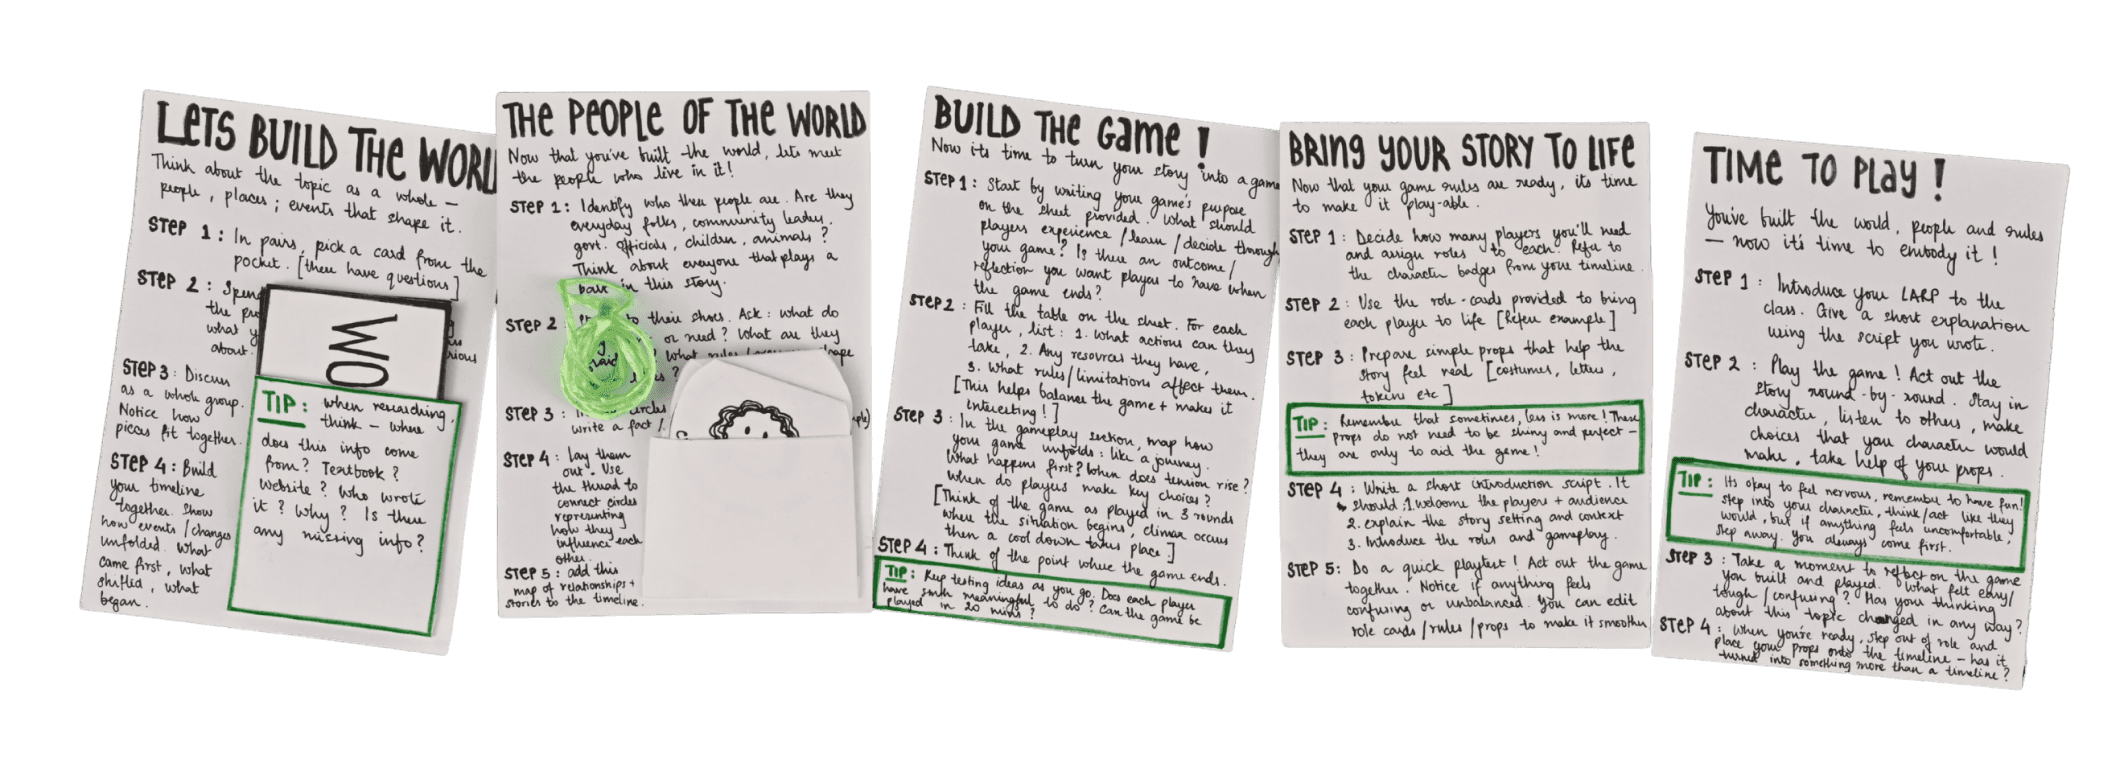 LETS BUILD THE WORL
Think about the topic as a whole –
people, places; events that shape it.
STEP 1: In pairs, pick a card from the
pocket. [these have questions]
STEP 2: Spend
the pro
what y
about.
STEP 3: Discuss
as a whole group.
Notice how
pieces fit together.
STEP 4: Build
your timeline
together. Show
how events/changes
unfolded. What
came first, what
shifted, what
began.
WO
TIP: when researching,
think – where
does this info come
from? Textbook?
Website? Who wrote
it? Why? Is there
any missing info?
THE PEOPLE OF THE WORLD
Now that you've built the world, lets meet
the people who live in it!
STEP 1: Identify who these people are. Are they
everyday folks, community leader,
govt. officials, children, animals?
Think about everyone that plays a
part in this story.
STEP 2 to their shoes. Ask: what do
or need? What are they
? What rules
STEP 3 circles
write a fact/
STEP 4: lay them
out. Use
the thread to
connect circles
representing
how they
influence each
other.
STEP 5: add this
map of relationships +
stories to the timeline.
BUILD THE GAME!
Now its time to turn your story into a game
STEP 1: Start by writing your game's purpose
on the sheet provided. What should
players experience/learn/decide through
your game? Is there an outcome/
reflection you want players to have when
the game ends?
STEP 2: Fill the table on the sheet. For each
player, list: 1. What actions can they
take, 2. Any resources they have,
3. What rules/limitations affect them.
[This helps balance the game + makes it
interesting!]
STEP 3: In the gameplay section, map how
your game unfolds: like a journey.
What happens first? When does tension rise?
When do players make key choices?
[Think of the game as played in 3 rounds
where the situation begins, climax occurs
then a cool down takes place]
STEP 4: Think of the point where the game ends.
TIP: Keep testing ideas as you go. Does each player
have smth meaningful to do? Can the game be
played in 20 mins?
BRING YOUR STORY TO LIFE
Now that your game rules are ready, its time
to make it play-able.
STEP 1: Decide how many players you'll need
and assign roles to each. Refer to
the character badges from your timeline.
STEP 2: Use the role-cards provided to bring
each player to life [Refer example]
STEP 3: Prepare simple props that help the
story feel real [costumes, letters,
tokens etc]
TIP: Remember that sometimes, less is more! These
props do not need to be shiny and perfect –
they are only to aid the game!
STEP 4: Write a short introduction script. It
should: 1. welcome the players + audience
2. explain the story setting and context
3. Introduce the roles and gameplay.
STEP 5: Do a quick playtest! Act out the game
together. Notice if anything feels
confusing or unbalanced. You can edit
role cards/rules/props to make it smoother
TIME TO PLAY!
You've built the world, people and rules
– now it's time to embody it!
STEP 1: Introduce your LARP to the
class. Give a short explanation
using the script you wrote.
STEP 2: Play the game! Act out the
story round-by-round. Stay in
character, listen to others, make
choices that you character would
make, take help of your props.
TIP: Its okay to feel nervous, remember to have fun!
Step into your character, think/act like they
would, but if anything feels uncomfortable,
step away. You always come first.
STEP 3: Take a moment to reflect on the game
you built and played. What felt easy/
tough/confusing? Has your thinking
about this topic changed in any way?
STEP 4: When you're ready, step out of role and
place your props onto the timeline – has it
turned into something more than a timeline?